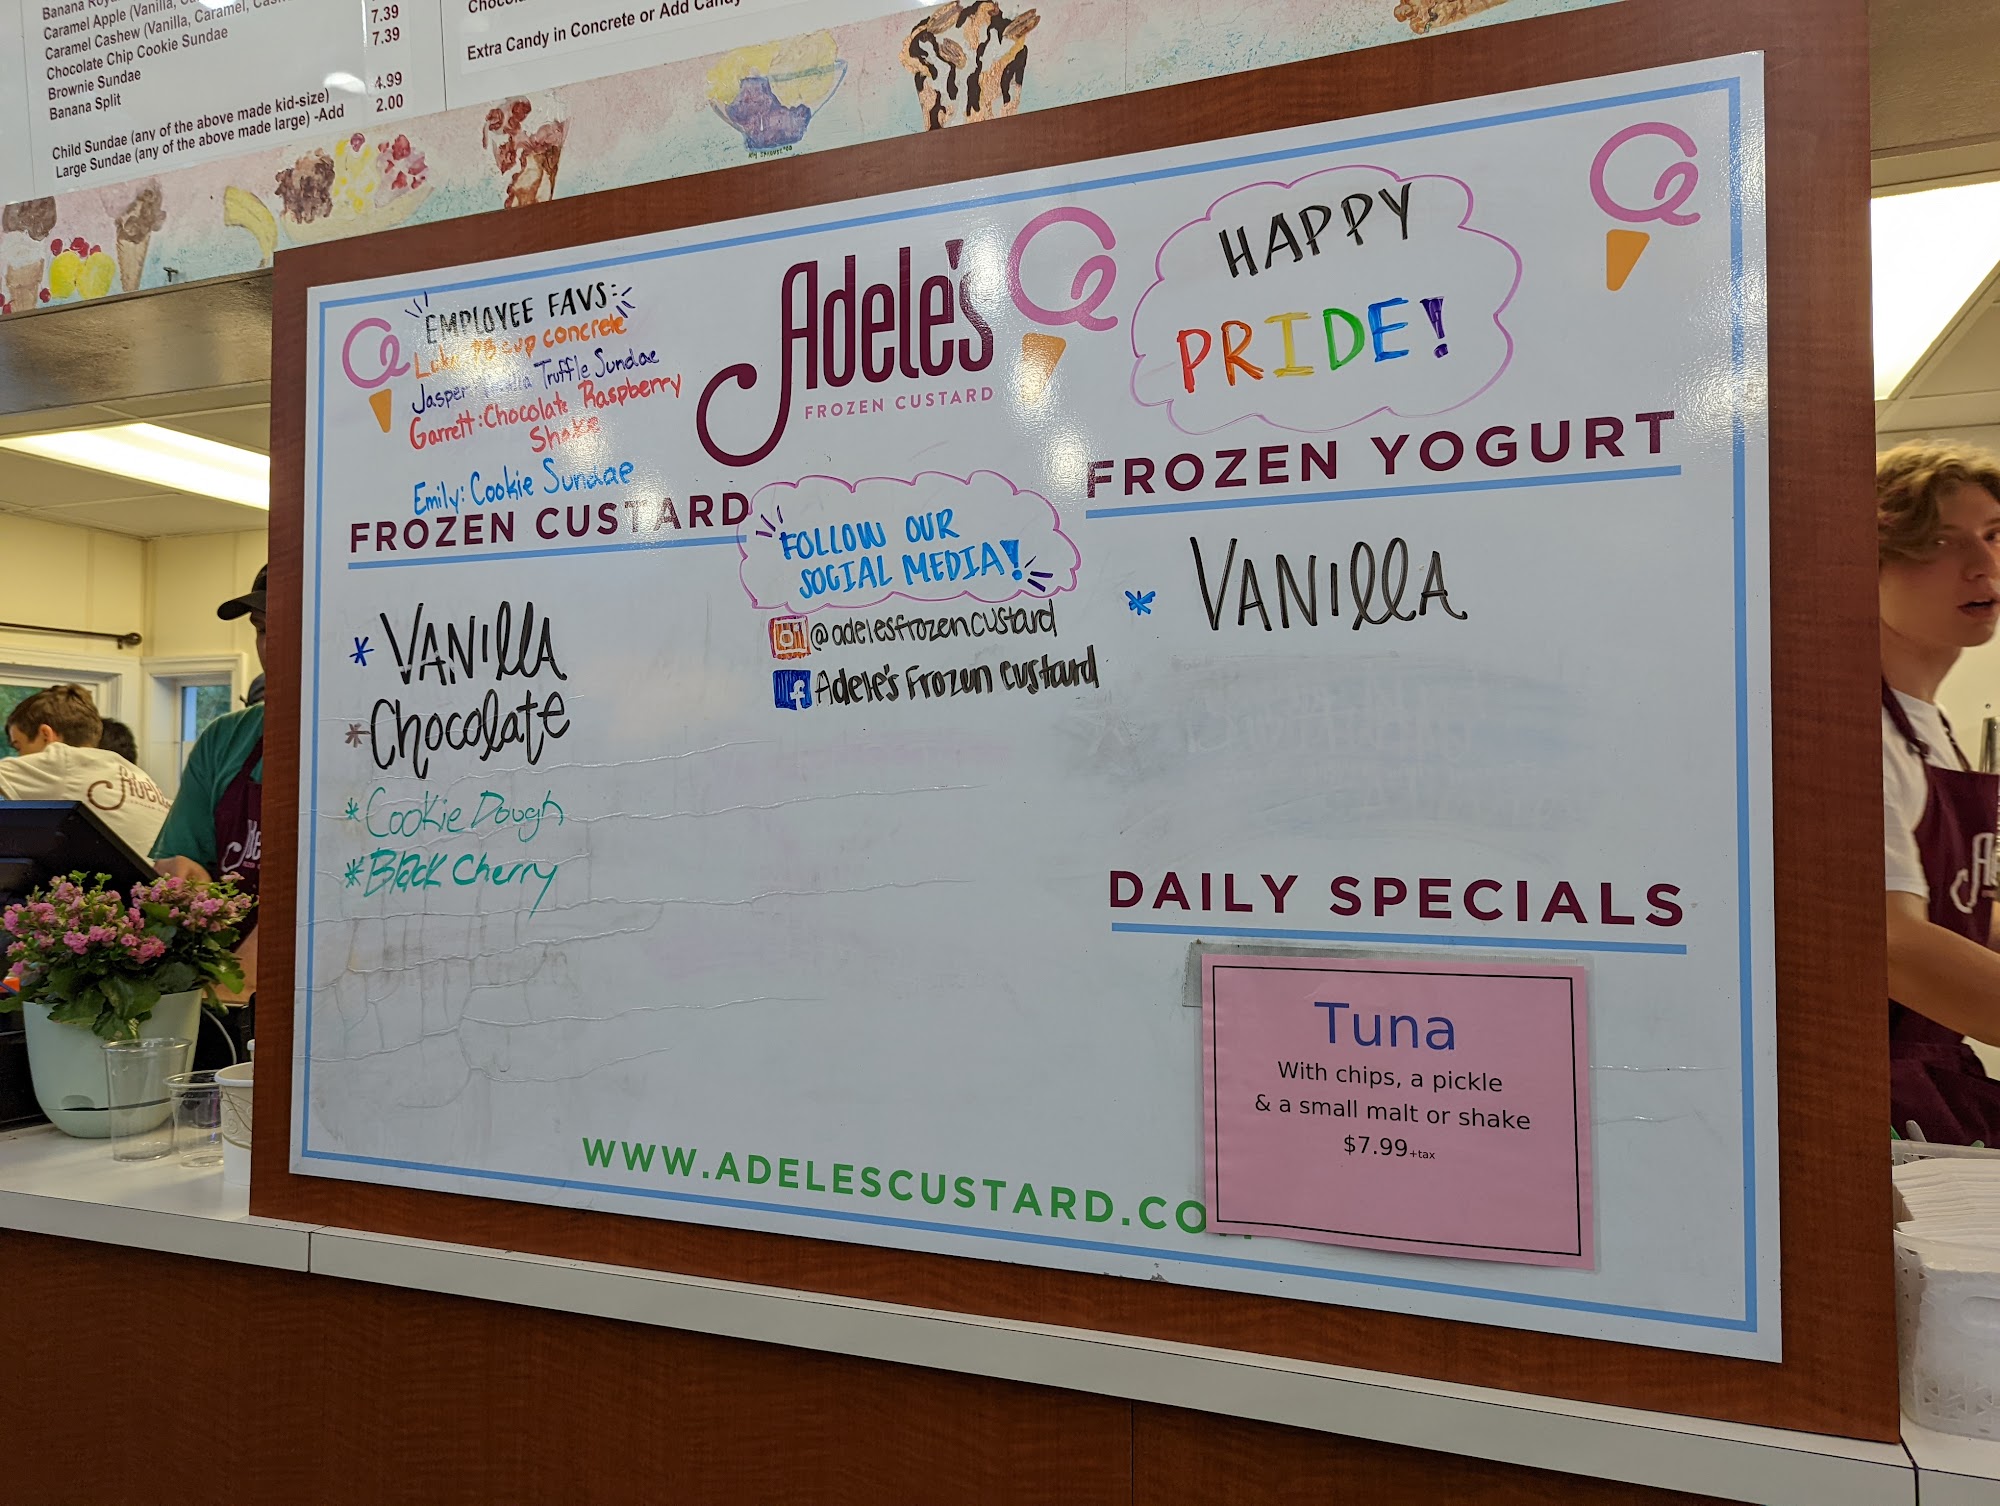 Banana
Caramel Apple (Vanilla,
Caramel Cashew (Vanilla, Caramel,
Chocolate Chip Cookie Sundae
Brownie Sundae
Banana Split
7.39
7.39
4.99
2.00
Child Sundae (any of the above made kid-size)
Large Sundae (any of the above made large) -Add
Extra Candy in Concrete or Add Candy
EMPLOYEE FAVS:
cup concrete
Jasper Truffle Sundae
Garrett: Chocolate Raspberry
Shake
Emily: Cookie Sundae
Adele's
FROZEN CUSTARD
HAPPY
PRIDE!
FROZEN CUSTARD
*VANIllA
*Chocolate
*Cookie Dough
*Black Cherry
FOLLOW OUR
SOCIAL MEDIA!
@adelesfrozencustard
f Adele's Frozen Custard
FROZEN YOGURT
* VANIllA
DAILY SPECIALS
Tuna
With chips, a pickle
& a small malt or shake
$7.99+tax
WWW.ADELESCUSTARD.CO